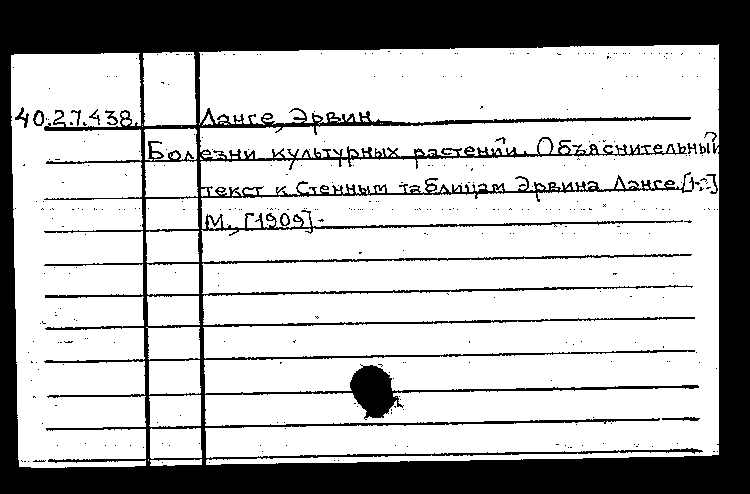 40.2.7.438. Ланге, Эрвин.
Болезни культурных растений. Объяснительный
текст к Стенным таблицам Эрвина Ланге.
М., [1909].-